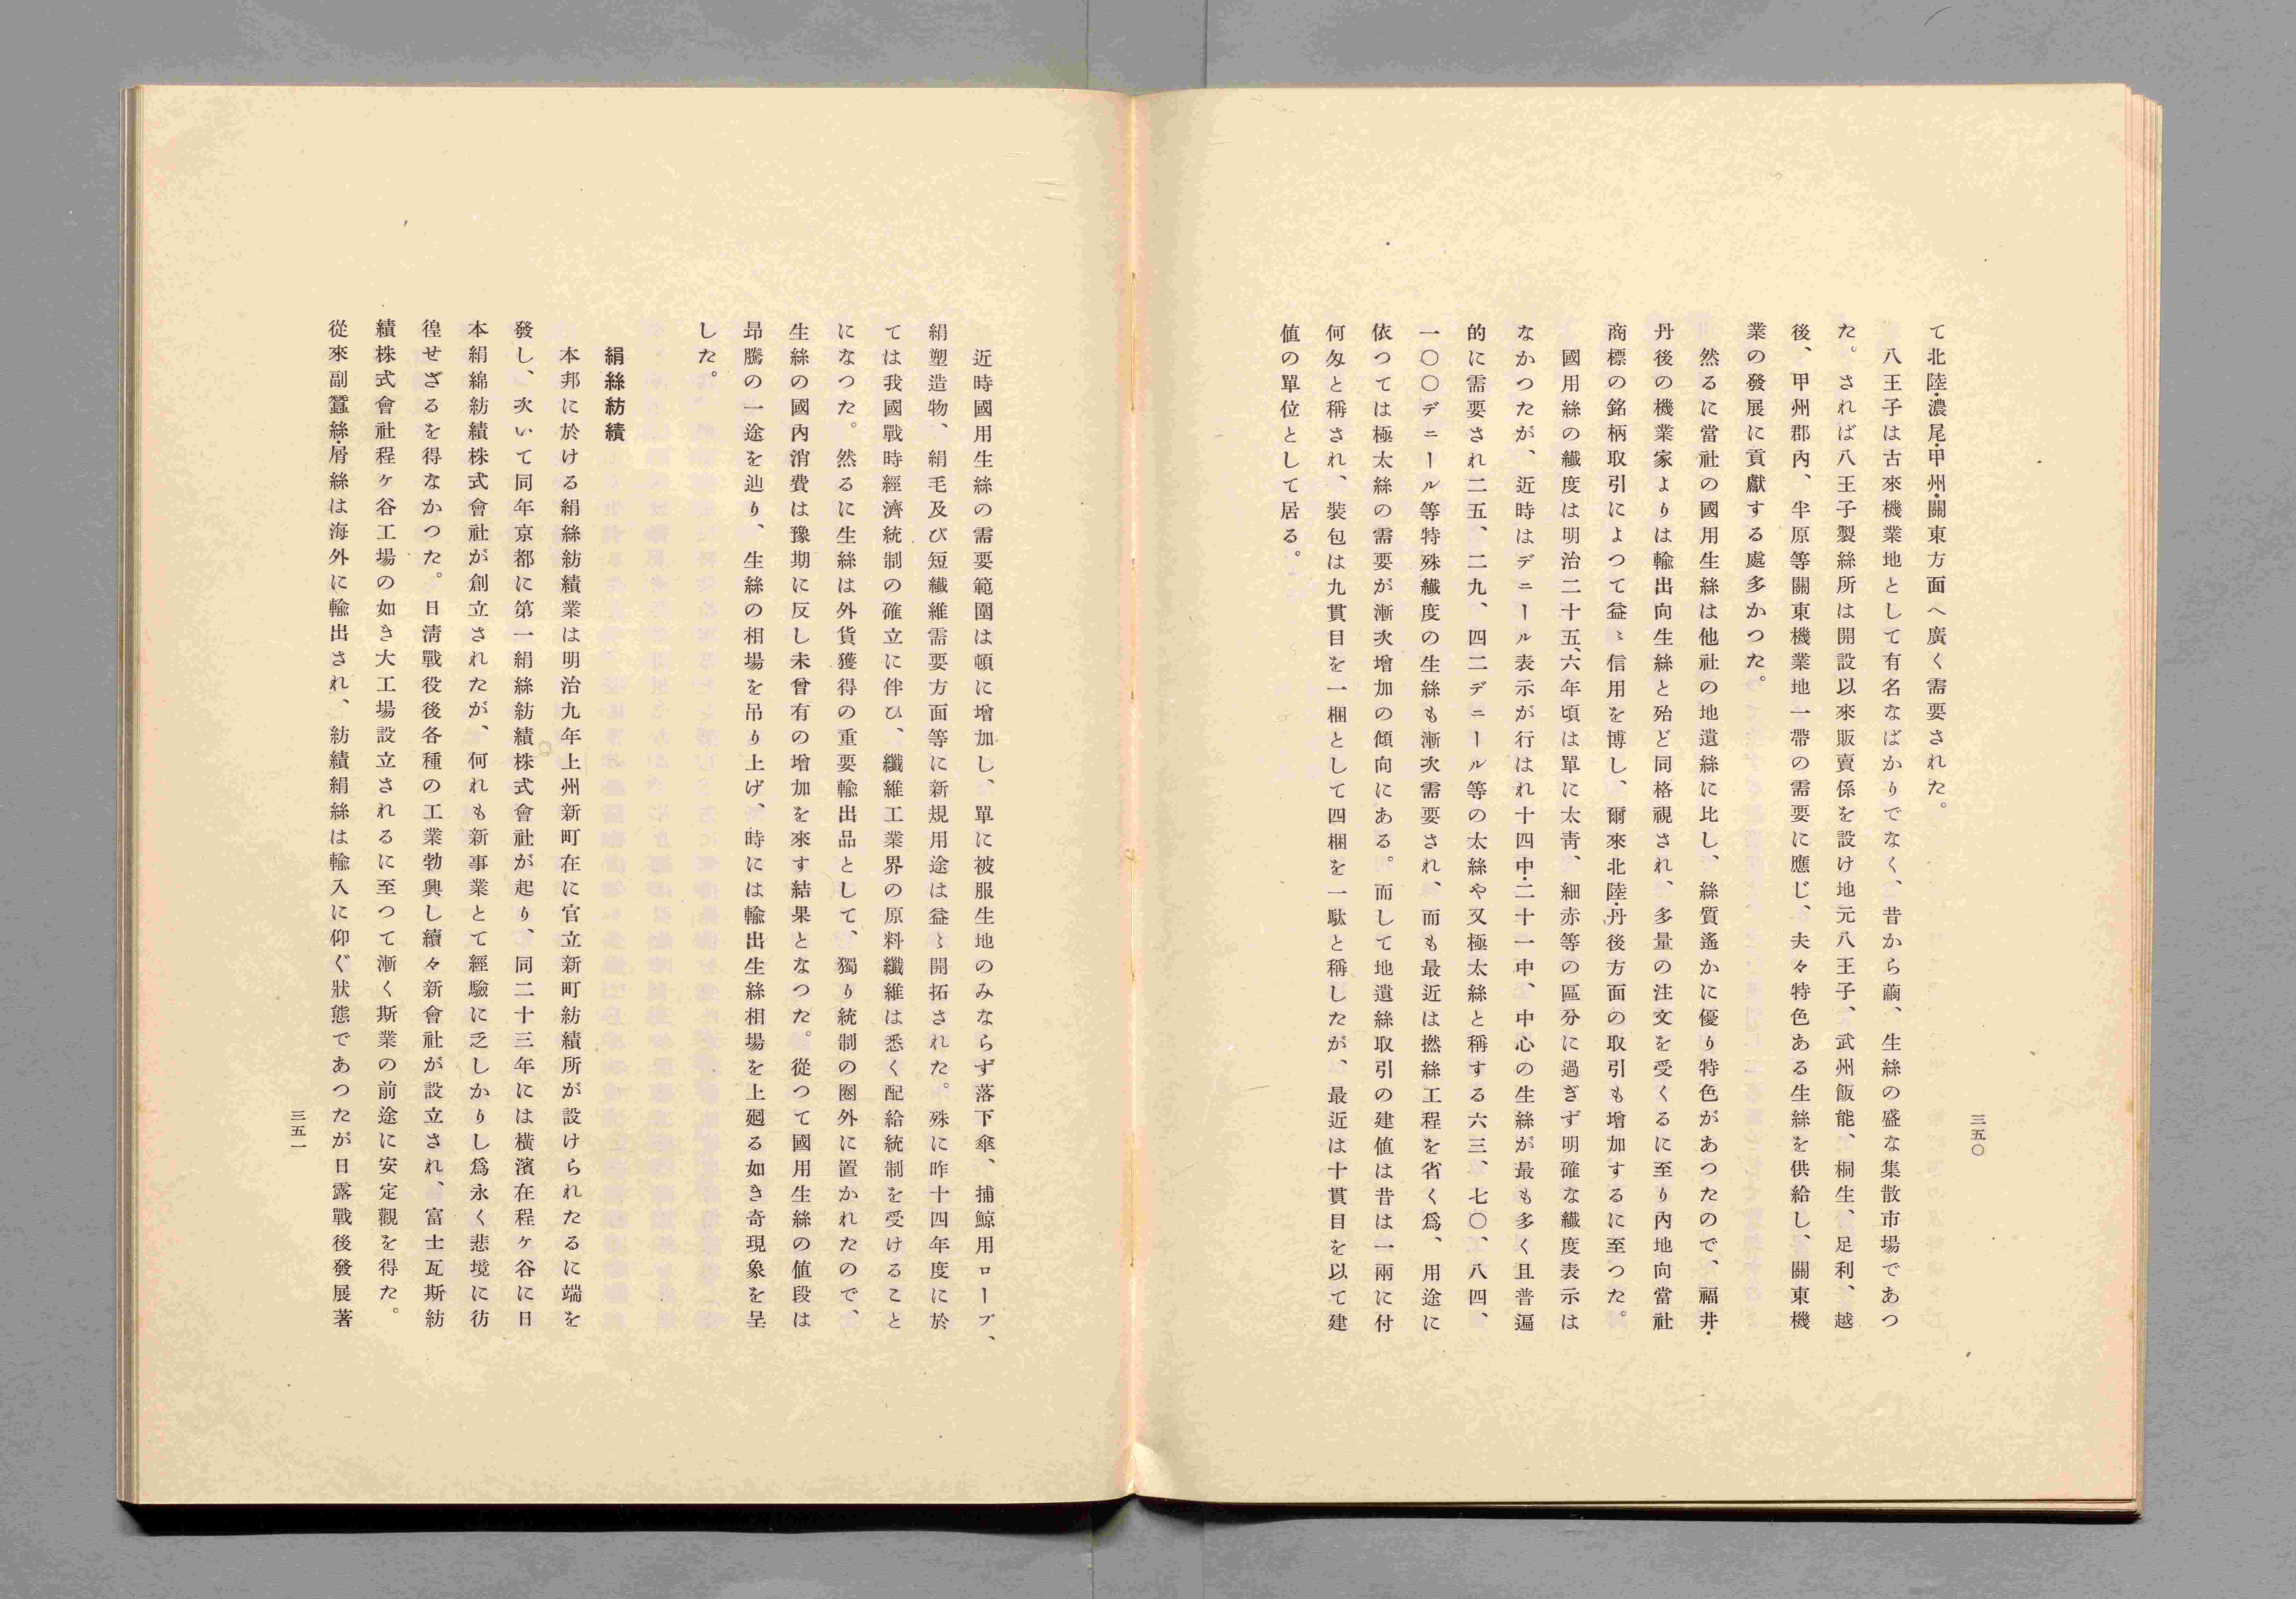 三五〇
て北陸・濃尾・甲州・關東方面へ廣く需要された。
八王子は古來機業地として有名なばかりでなく、昔から繭、生絲の盛な集散市場であつ
た。されば八王子製絲所は開設以來販賣係を設け地元八王子、武州飯能、桐生、足利、越
後、甲州郡內、半原等關東機業地一帶の需要に應じ、夫々特色ある生絲を供給し、關東機
業の發展に貢獻する處多かつた。
然るに當社の國用生絲は他社の地遣絲に比し、絲質遙かに優り特色があつたので、福井・
丹後の機業家よりは輸出向生絲と殆ど同格視され、多量の注文を受くるに至り內地向當社
商標の銘柄取引によつて益〻信用を博し、爾來北陸・丹後方面の取引も增加するに至つた。
國用絲の纖度は明治二十五、六年頃は單に太靑、細赤等の區分に過ぎず明確な纖度表示は
なかつたが、近時はデニール表示が行はれ十四中・二十一中、中心の生絲が最も多く且普遍
的に需要され二五、二九、四二デニール等の太絲や又極太絲と稱する六三、七〇、八四、
一〇〇デニール等特殊纖度の生絲も漸次需要され、而も最近は撚絲工程を省く爲、用途に
依つては極太絲の需要が漸次增加の傾向にある。而して地遣絲取引の建値は昔は一兩に付
何匁と稱され、裝包は九貫目を一梱として四梱を一駄と稱したが、最近は十貫目を以て建
値の單位として居る。
近時國用生絲の需要範圍は頓に增加し、單に被服生地のみならず落下傘、捕鯨用ロープ、
絹塑造物、絹毛及び短纖維需要方面等に新規用途は益〻開拓された。殊に昨十四年度に於
ては我國戰時經濟統制の確立に伴ひ、纖維工業界の原料纖維は悉く配給統制を受けること
になつた。然るに生絲は外貨獲得の重要輸出品として、獨り統制の圏外に置かれたので、
生絲の國內消費は豫期に反し未曾有の增加を來す結果となつた。從つて國用生絲の値段は
昻騰の一途を辿り、生絲の相場を吊り上げ、時には輸出生絲相場を上廻る如き奇現象を呈
した。
絹絲紡績
本邦に於ける絹絲紡績業は明治九年上州新町在に官立新町紡績所が設けられたるに端を
發し、次いて同年京都に第一絹絲紡績株式會社が起り、同二十三年には橫濱在程ヶ谷に日
本絹綿紡績株式會社が創立されたが、何れも新事業とて經驗に乏しかりし爲永く悲境に彷
徨せざるを得なかつた。日淸戰役後各種の工業勃興し續々新會社が設立され、富士瓦斯紡
績株式會社程ヶ谷工場の如き大工場設立されるに至つて漸く斯業の前途に安定觀を得た。
從來副蠶絲・屑絲は海外に輸出され、紡績絹絲は輸入に仰ぐ狀態であつたが日露戰後發展著
三五一